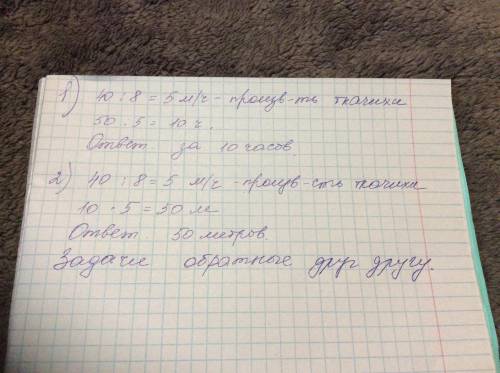 1) 40 : 8 = 5 м/ч - произв-ть ткачихи
50 : 5 = 10 ч.
Ответ за 10 часов
2) 40 : 8 = 5 м/ч - произв-сть ткачихи
10 · 5 = 50 м
Ответ. 50 метров.
Задачи обратные друг другу.